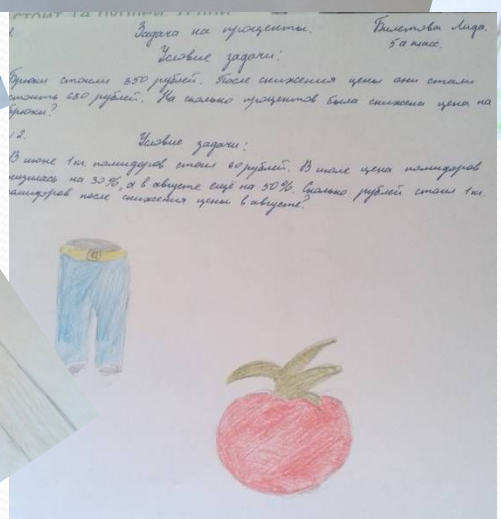 Задача на проценты.
Билетова Лида.
5 а класс.
Условие задачи:
Брюки стоили 850 рублей. После снижения цены они стали
стоить 680 рублей. На сколько процентов была снижена цена на
брюки?
2.
Условие задачи:
В июне 1 кг. помидоров стоил 60 рублей. В июле цена помидоров
снизилась на 30%, а в августе ещё на 50%. Сколько рублей стоил 1 кг.
помидоров после снижения цены в августе?